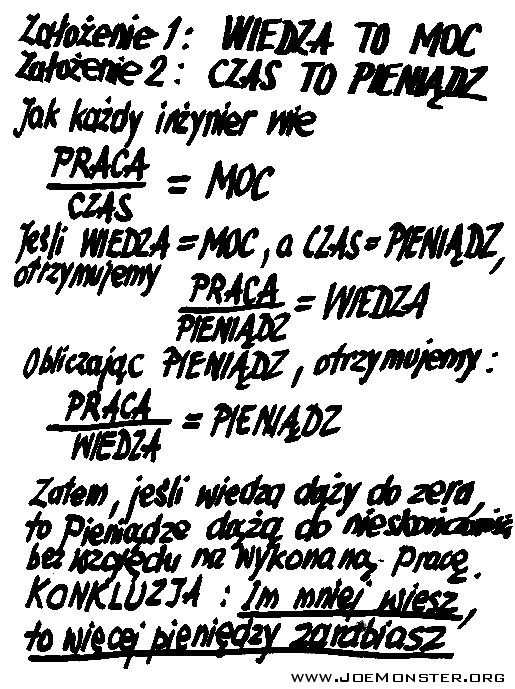 Założenie 1: WIEDZA TO MOC
Założenie 2: CZAS TO PIENIĄDZ
Jak każdy inżynier wie
PRACA
CZAS = MOC
Jeśli WIEDZA = MOC, a CZAS = PIENIĄDZ,
otrzymujemy
PRACA
PIENIĄDZ = WIEDZA
Obliczając PIENIĄDZ, otrzymujemy:
PRACA
WIEDZA = PIENIĄDZ
Zatem, jeśli wiedza dąży do zera,
to Pieniądze dążą do nieskończoności
bez względu na wykonaną pracę.
KONKLUZJA: Im mniej wiesz,
to więcej pieniędzy zarabiasz
WWW.JOEMONSTER.ORG